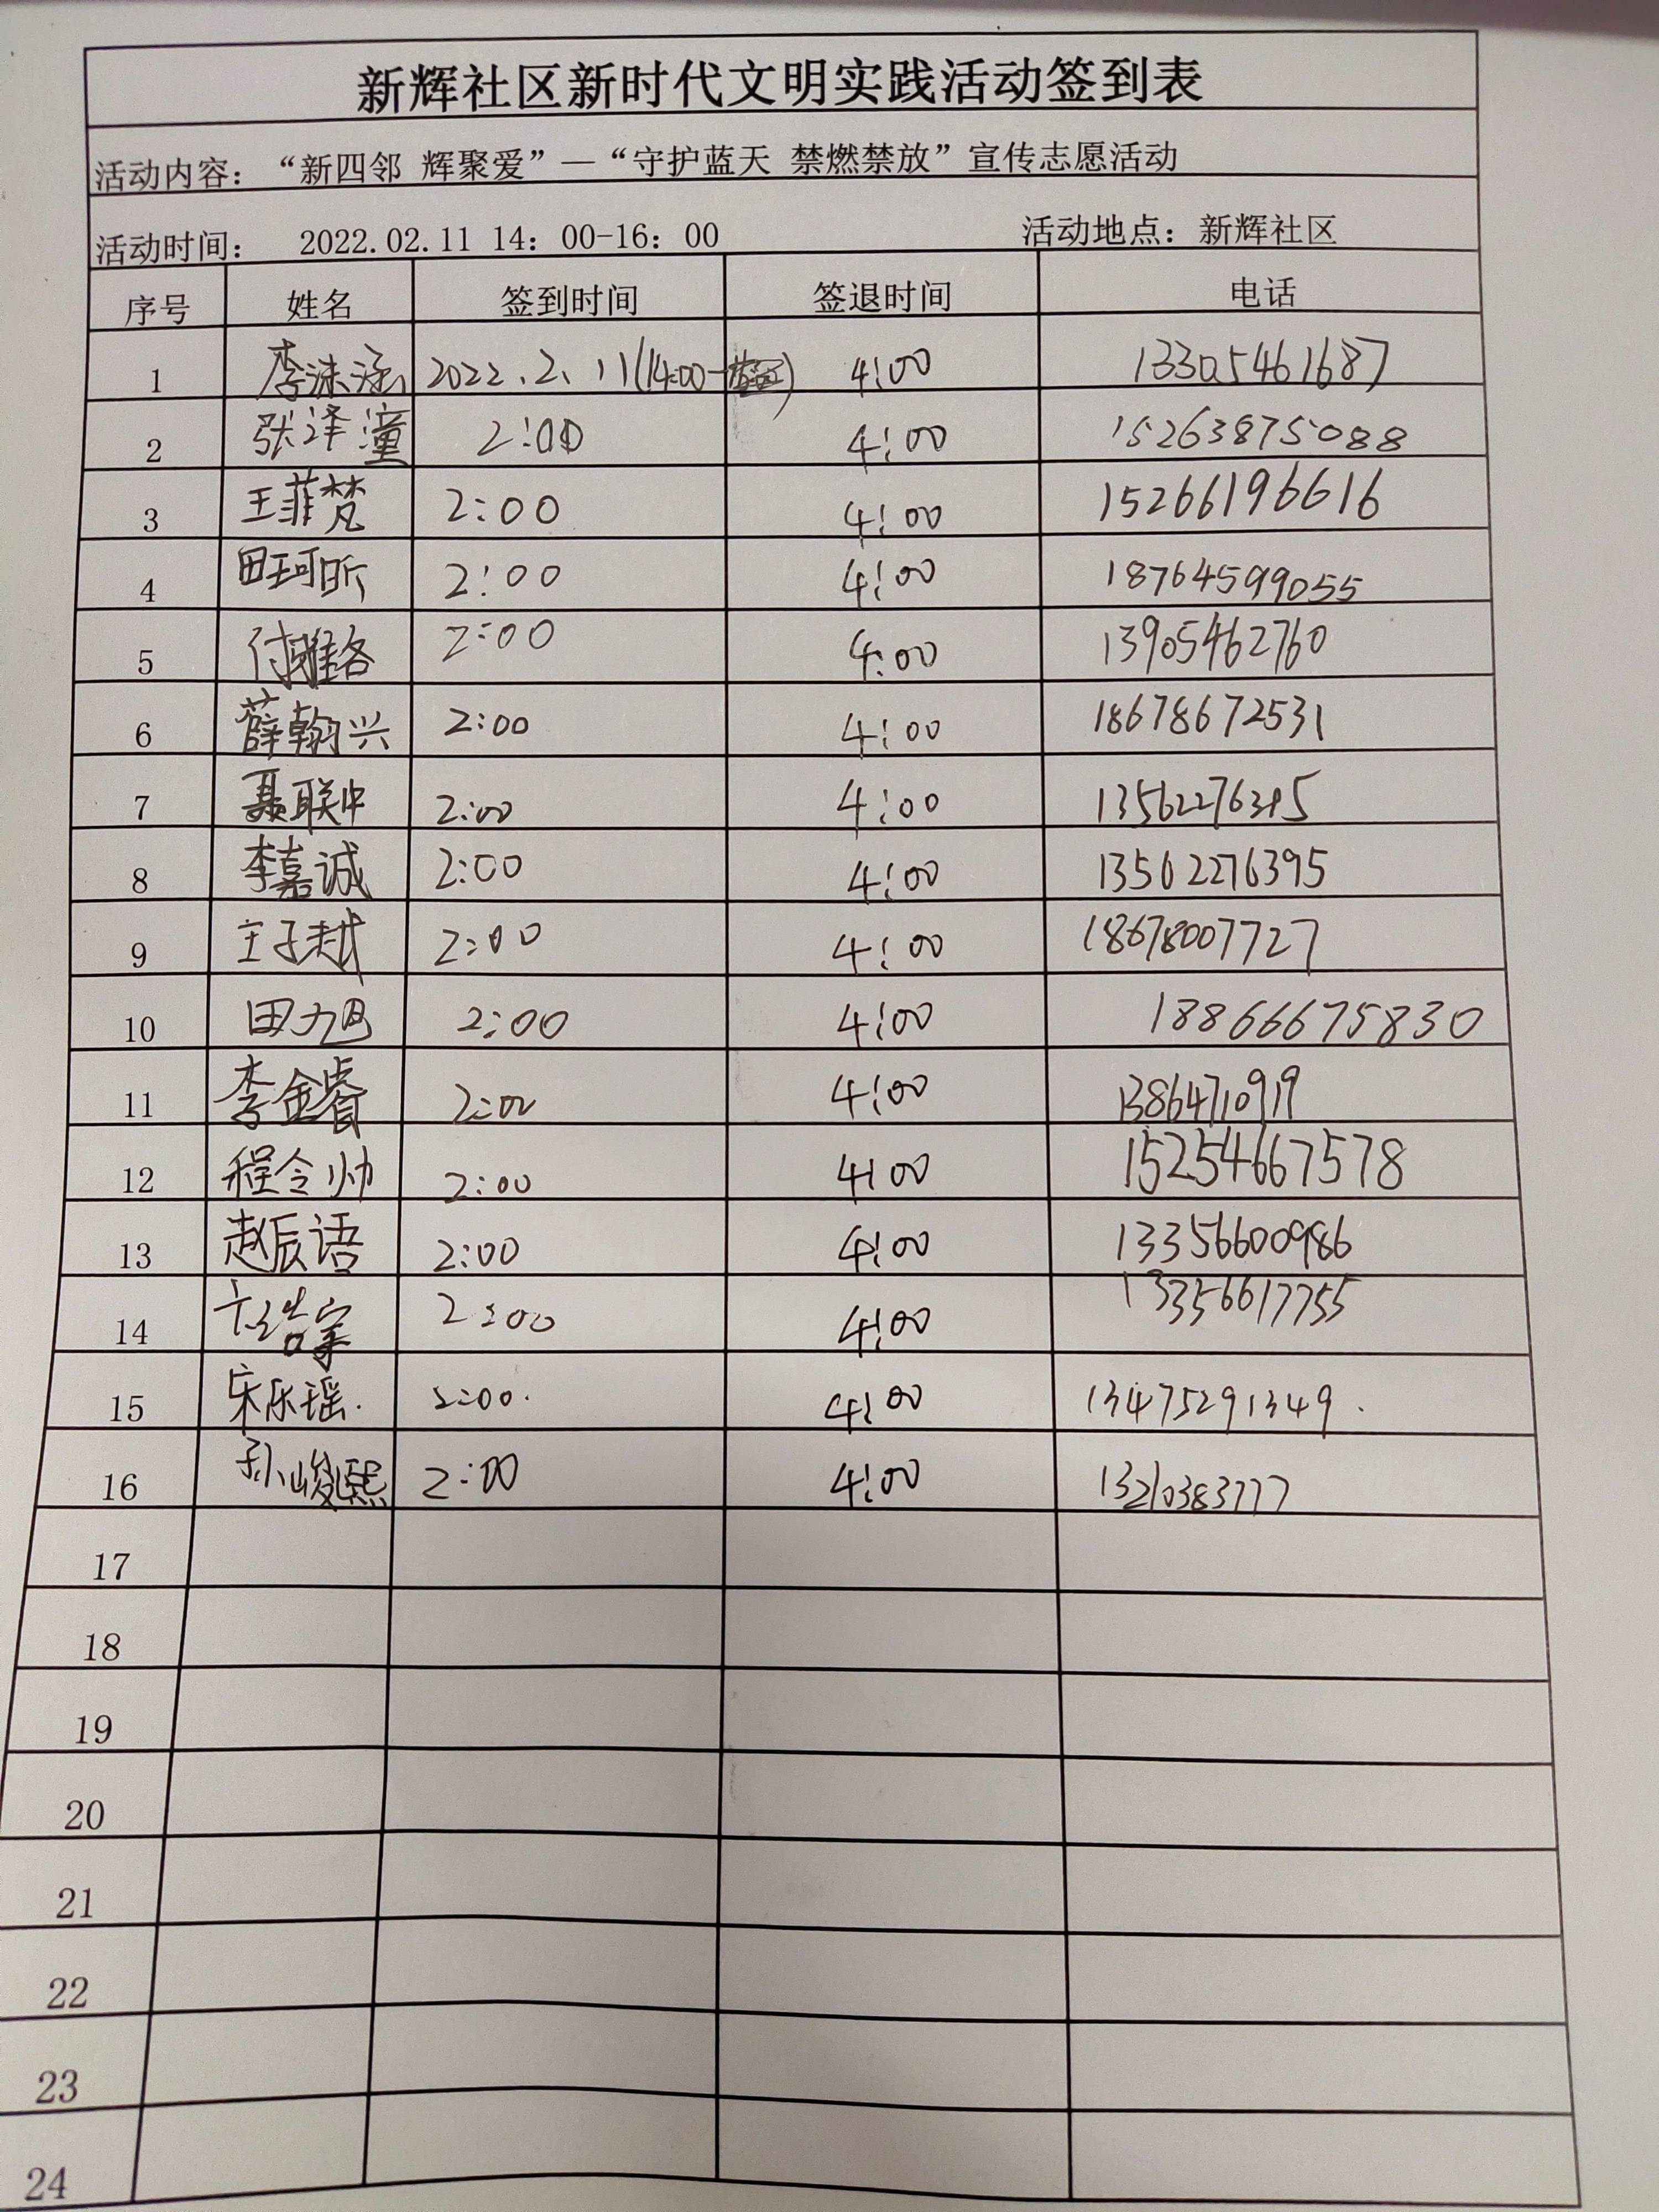 新辉社区新时代文明实践活动签到表
活动内容：“新四邻 辉聚爱”—“守护蓝天 禁燃禁放”宣传志愿活动
活动时间： 2022.02.11 14：00-16：00 活动地点：新辉社区
序号 姓名 签到时间 签退时间 电话
1 李沫涵 2022.2.11(14:00- ) 4:00 13305461687
2 张泽潼 2:00 4:00 15263875088
3 王菲梵 2:00 4:00 15266196616
4 田珂昕 2:00 4:00 18764599055
5 付雅洛 2:00 4:00 13905462760
6 薛翰兴 2:00 4:00 18678672531
7 聂联中 2:00 4:00
8 李嘉诚 2:00 4:00 13562276395
9 王子越 2:00 4:00 18678007727
10 田旭 2:00 4:00 18866675830
11 李金睿 2:00 4:00
12 程令帅 2:00 4:00 15254667578
13 赵辰语 2:00 4:00 13356600986
14 2:00 4:00 13356617755
15 宋乐瑶. 2:00. 4:00 13475291349.
16 孙峻熙 2:00 4:00 13210383777
17
18
19
20
21
22
23
24